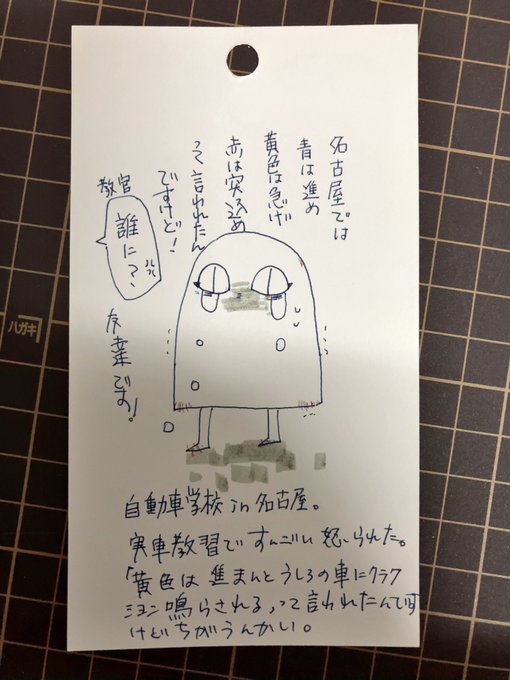 名古屋では
青は進め
黄色は急げ
赤は突っ込め
って言われたん
ですけど!
教官
誰に?
です!
ハガキ
自動車学校in名古屋。
実車教習ですんごい怒られた。
「黄色は進まんとうしろの車にクラク
ション鳴らされる」って言われたんです
けどちがうんかい。